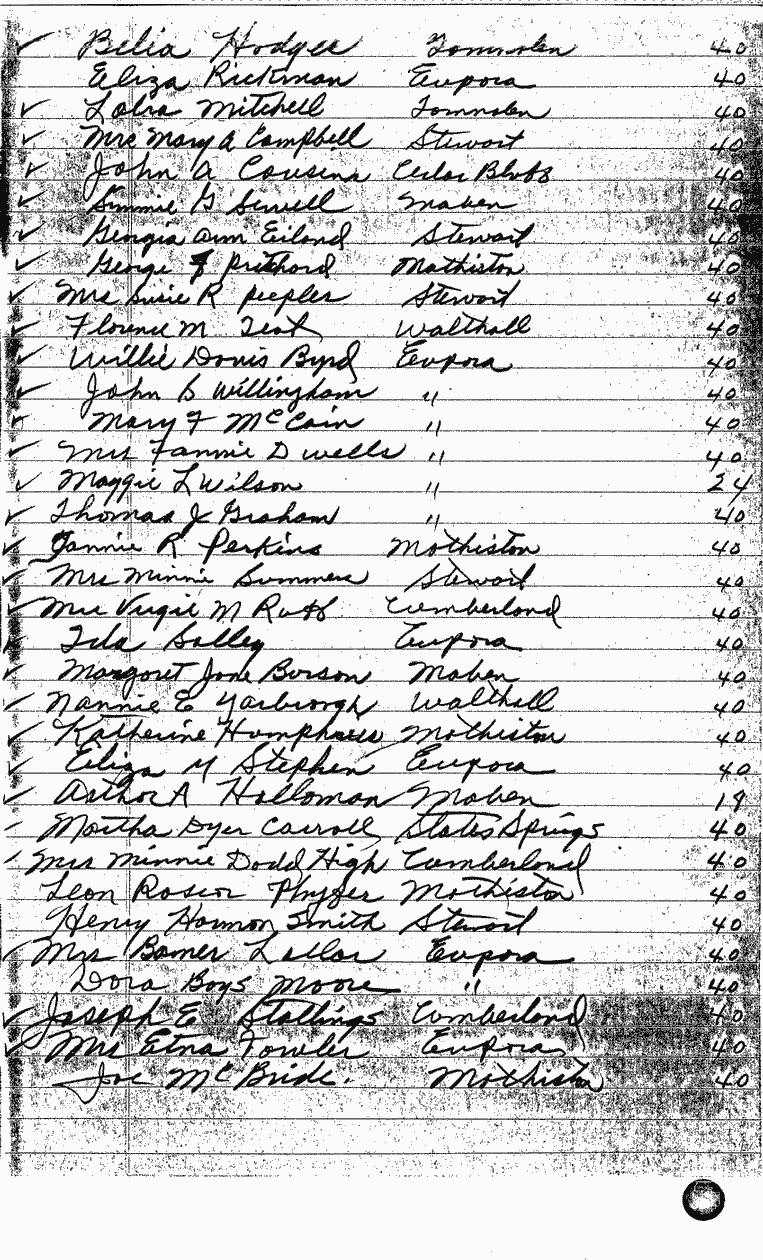 ✓ Belia Hodges Tomnolen 40
Eliza Rickman Eupora 40
✓ Mitchell Tomnolen 40
✓ Mrs Mary A Campbell Stewart 40
✓ John A Cousins Cedar Bluff 40
✓ Simmie G Sewell Maben 40
✓ Georgia Ann Eiland Stewart 40
✓ George F Prichard Mathiston 40
✓ Mrs Susie R Peeples Stewart 40
✓ Florence M Teat Walthall 40
✓ Willie Davis Byrd Eupora 40
✓ John B Willingham " 40
✓ Mary F McCain " 40
✓ Mrs Fannie D Wells " 40
✓ Maggie L Wilson " 24
✓ Thomas J Graham " 40
✓ Fannie R Perkins Mathiston 40
✓ Mrs Minnie Summers Stewart 40
✓ Mrs Virgie M Ruff Cumberland 40
✓ Ida Salley Eupora 40
✓ Margaret Jane Burson Maben 40
✓ Nannie E Yarbrough Walthall 40
✓ Katherine Humphries Mathiston 40
✓ Eliza M Stephen Eupora 40
✓ Arthor A Holloman Maben 18
✓ Martha Dyer Carroll Slates Springs 40
✓ Mrs Minnie Dodd High Cumberland 40
Leon Roscor Phyfer Mathiston 40
Henry Harmon Smith Stewart 40
✓ Mrs Bomer Lollar Eupora 40
Dora Boys Moore " 40
✓ Joseph E Stallings Cumberland 40
✓ Mrs Etna Fowler Eupora 40
Joe McBride. Mathiston 40